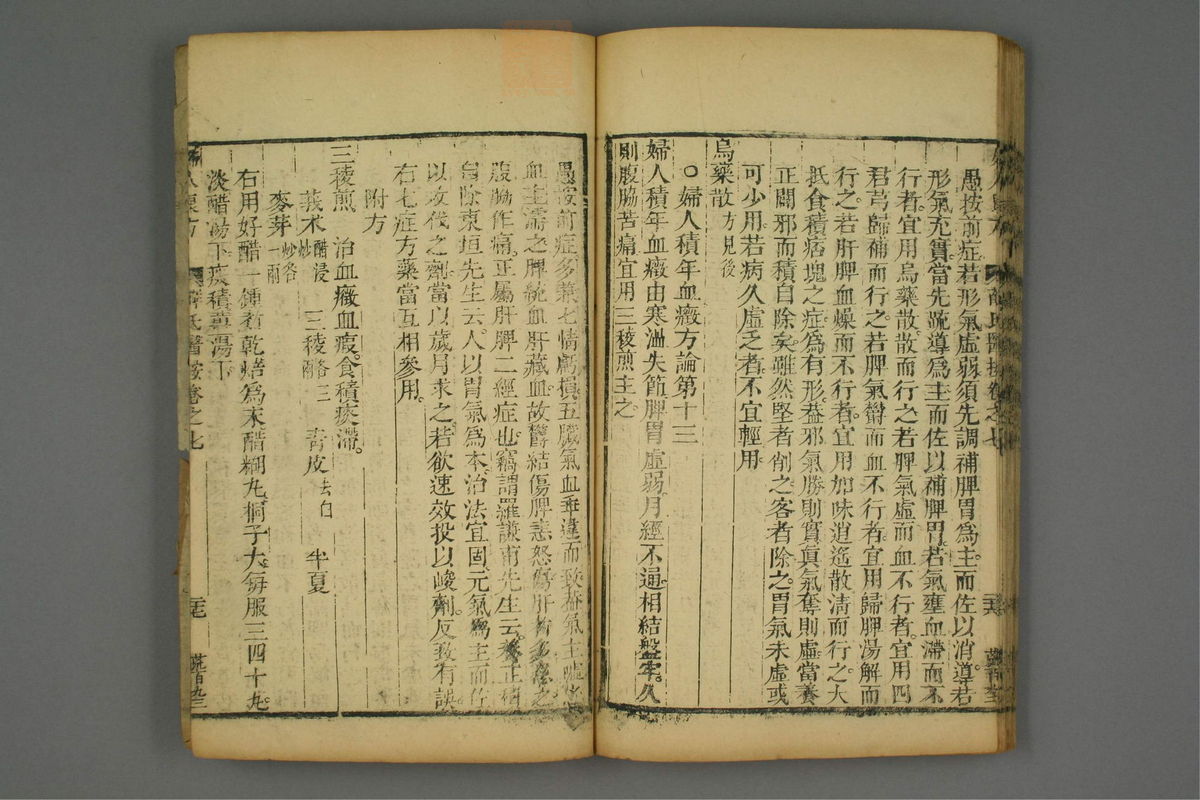 愚按前症若形氣虛弱須先調補脾胃爲主而佐以消導若
形氣充實當先疏導爲主而佐以補脾胃若氣壅血滯而不
行者宜用烏藥散散而行之若脾氣虛而血不行者宜用四
君芎歸補而行之若脾氣鬱而血不行者宜用歸脾湯解而
行之若肝脾血燥而不行者宜用加味逍遙散淸而行之大
抵食積痞塊之症爲有形葢邪氣勝則實眞氣奪則虛當養
正闢邪而積自除矣雖然堅者削之客者除之胃氣未虛或
可少用若病久虛乏者不宜輕用
烏藥散方見後
○婦人積年血癥方論第十三
婦人積年血癥由寒溫失節脾胃虛弱月經不通相結盤牢久
則腹脇苦痛宜用三稜煎主之
愚按前症多兼七情虧損五臟氣血乖違而致葢氣主噓之
血主濡之脾統血肝藏血故鬱結傷脾恚怒傷肝者多患之
腹脇作痛正屬肝脾二經症也竊謂羅謙甫先生云養正積
自除東垣先生云人以胃氣爲本治法宜固元氣爲主而佐
以攻伐之劑當以歲月求之若欲速效投以峻劑反致有誤
右七症方藥當互相參用
附方
三稜煎 治血癥血瘕食積痰滯
莪朮醋浸炒 三稜各三 靑皮去白 半夏
麥芽炒各一兩
右用好醋一鍾煮乾焙爲末醋糊丸桐子大每服三四十丸
淡醋湯下痰積薑湯下
薛氏醫按卷之七